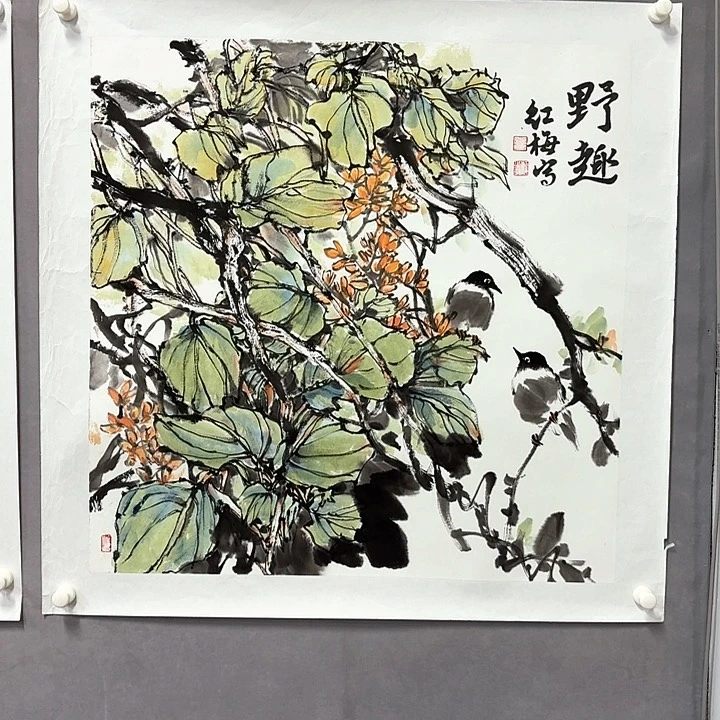 野趣
红梅写